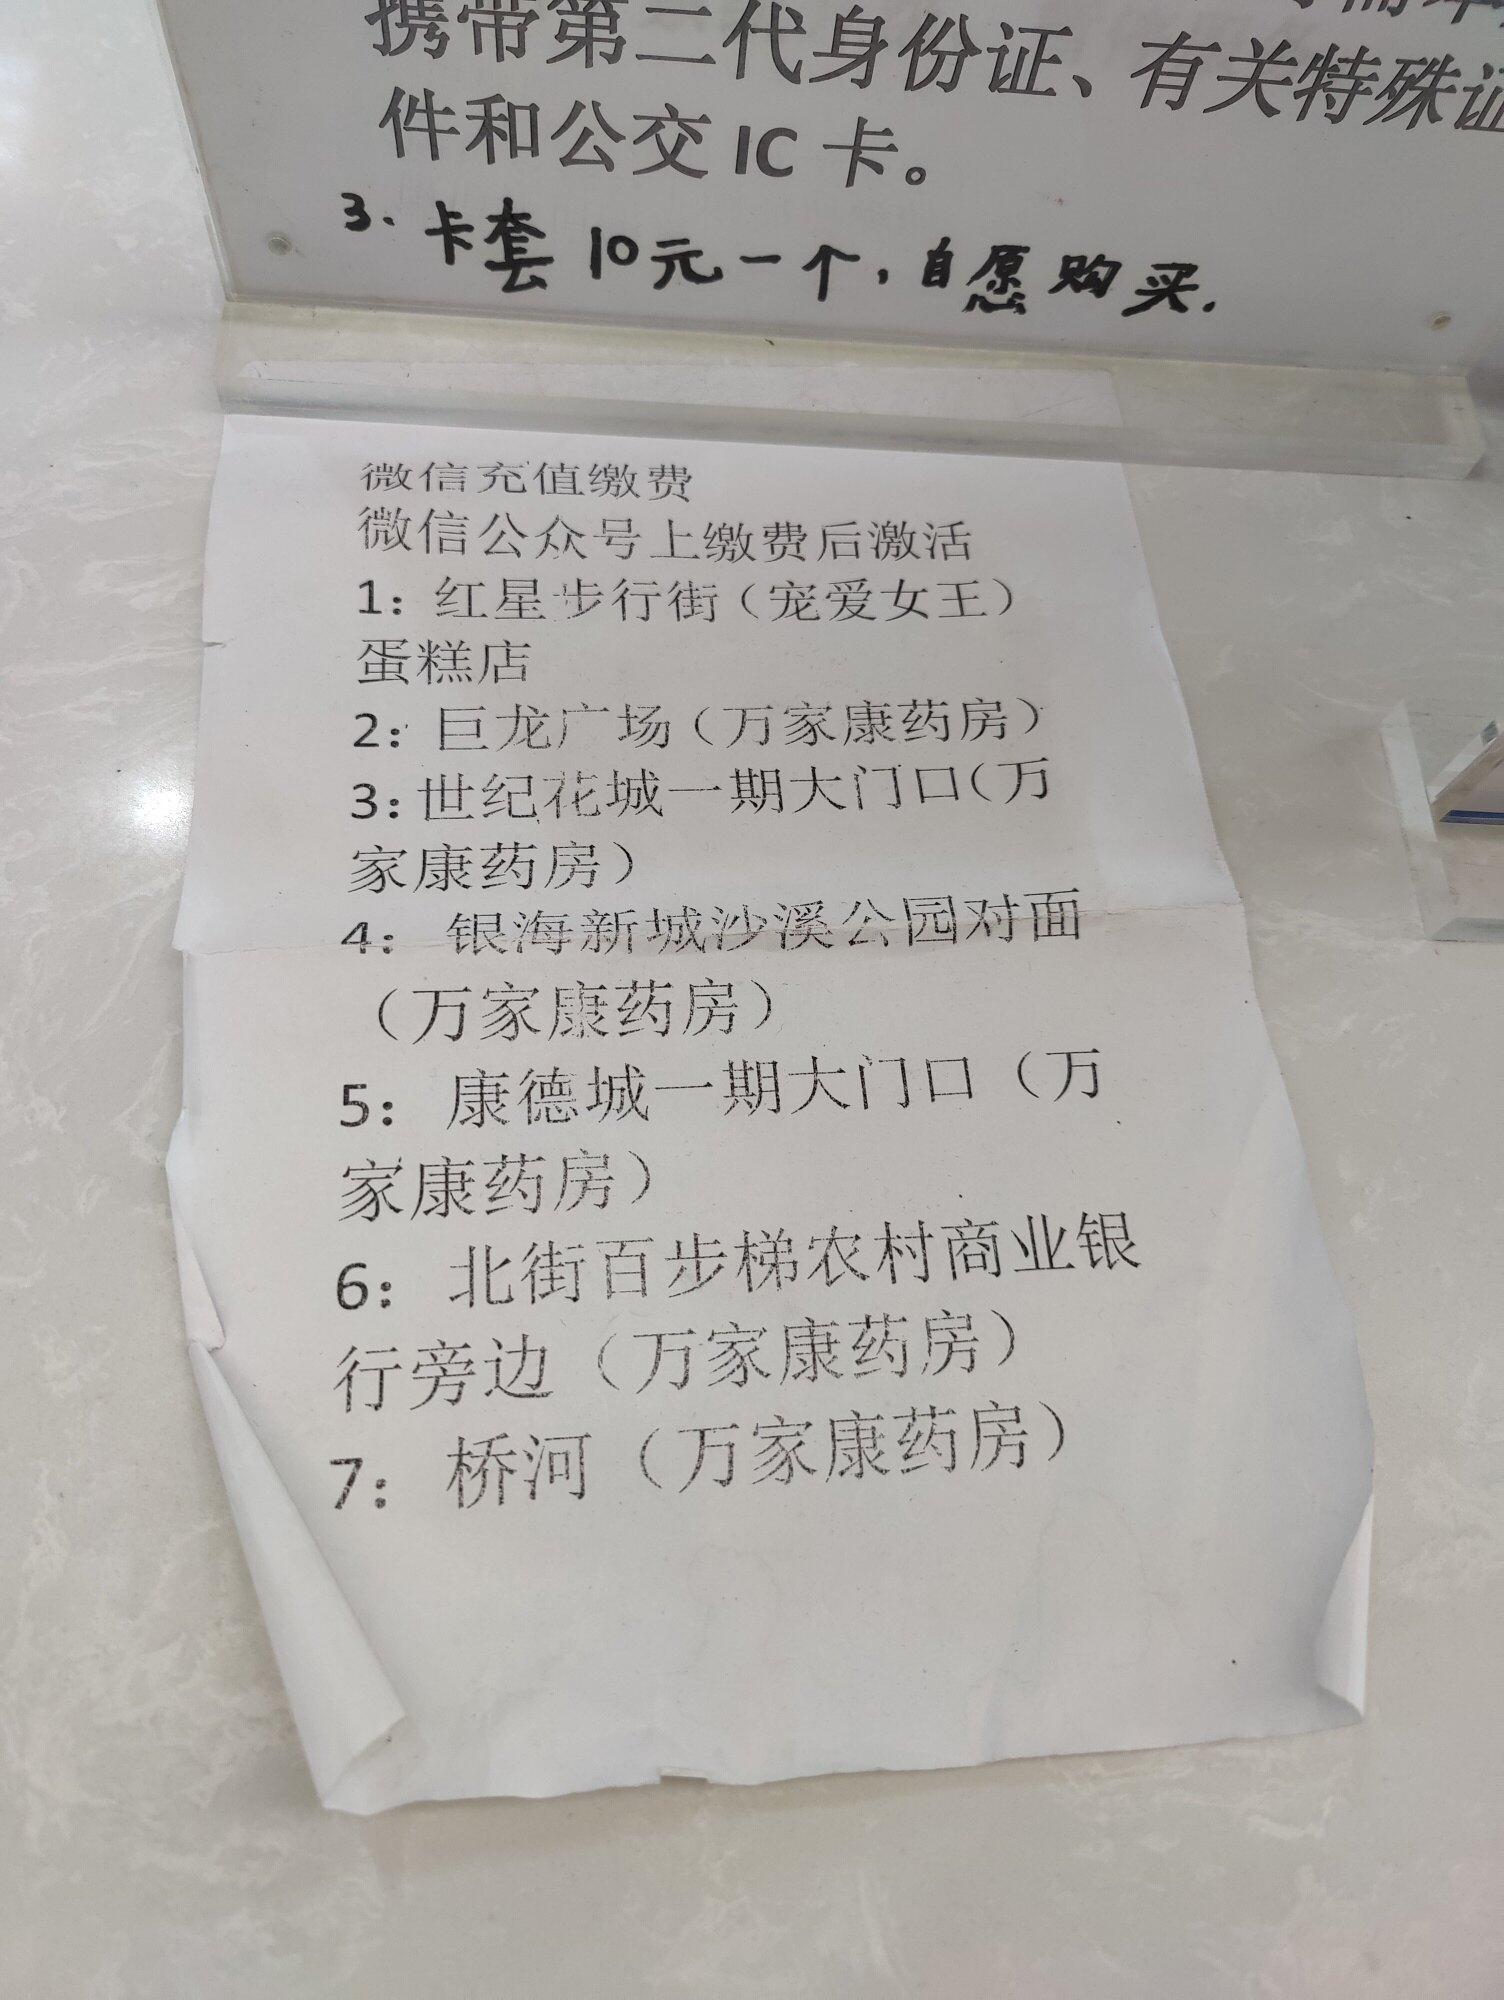 携带第二代身份证、有关特殊证
件和公交 IC 卡。
3. 卡套 10元一个，自愿购买.
微信充值缴费
微信公众号上缴费后激活
1：红星步行街（宠爱女王）
蛋糕店
2：巨龙广场（万家康药房）
3：世纪花城一期大门口（万
家康药房）
4： 银海新城沙溪公园对面
（万家康药房）
5： 康德城一期大门口（万
家康药房）
6： 北街百步梯农村商业银
行旁边（万家康药房）
7： 桥河（万家康药房）